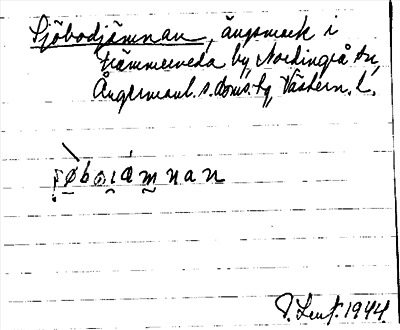 Sjöbodjämnan, ängsmark i
Främmerveda by, Nordingrå sn,
Ångermanl. s. doms.hg, Västern. l.
ʃøboiamnan
1944.